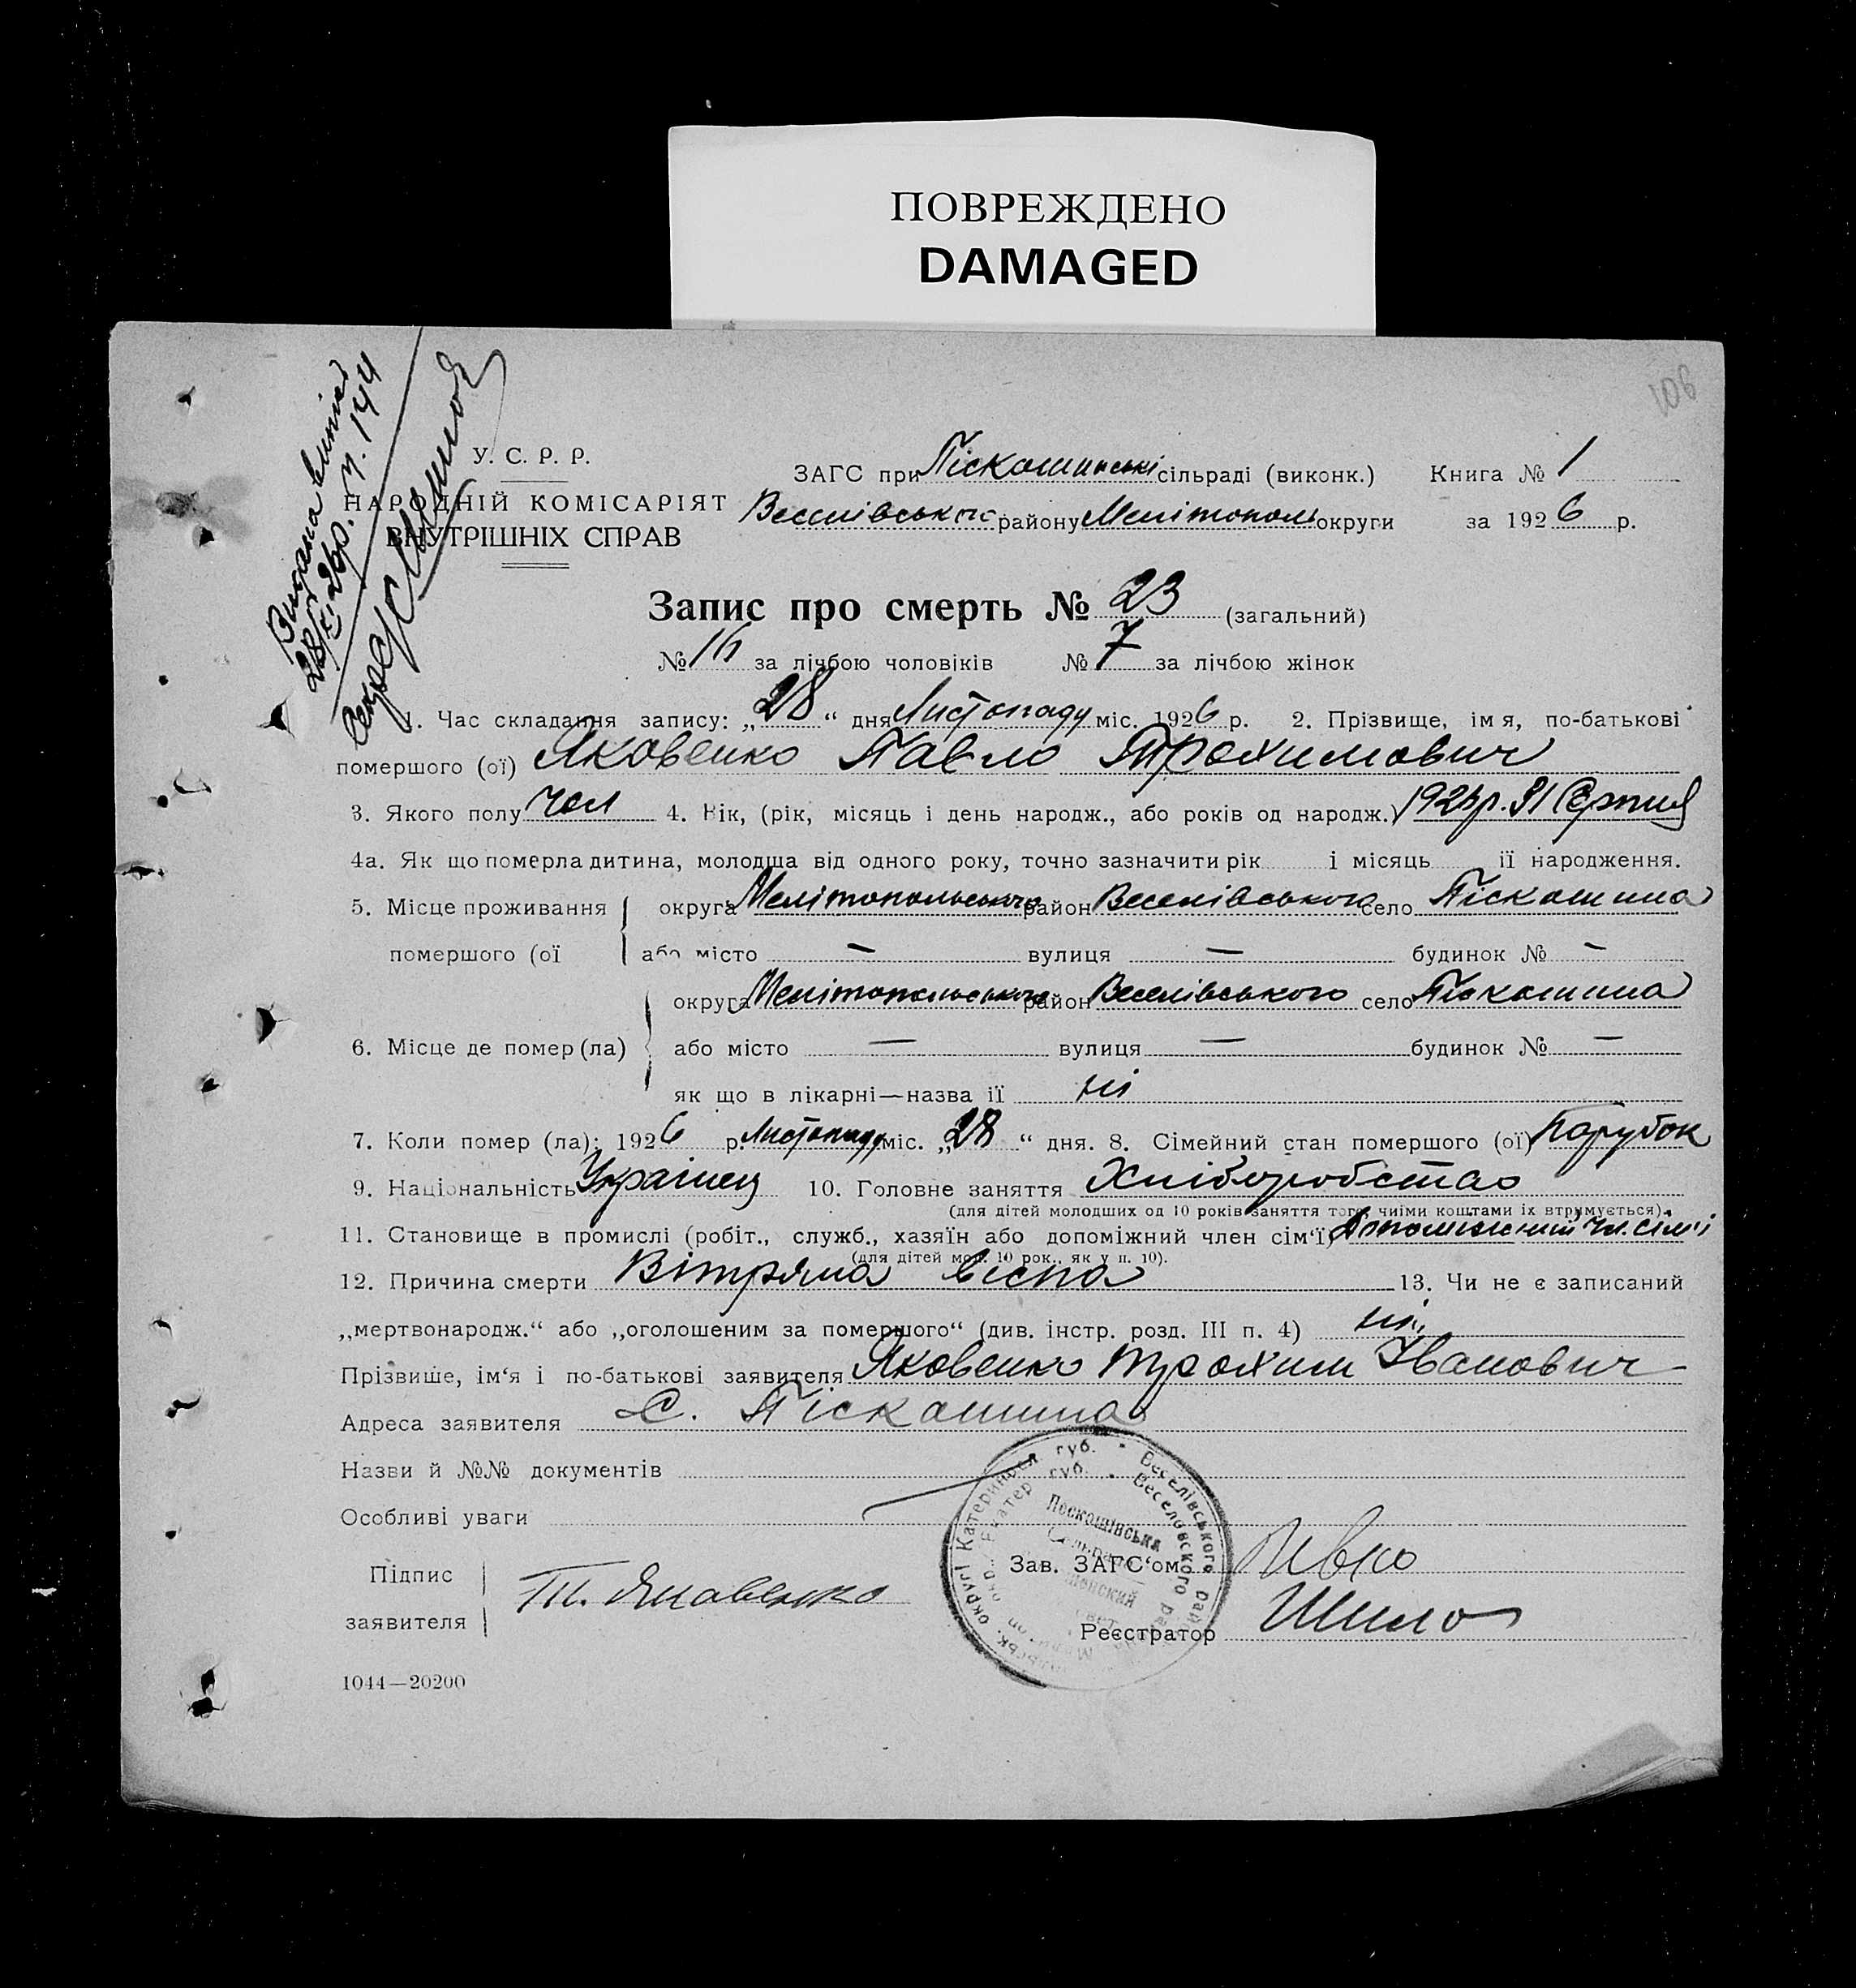 ПОВРЕЖДЕНО
DAMAGED
106
Видана виписъ
28/XI 26р. п. 144
Секрет
У. С. Р. Р.
НАРОДНІЙ КОМІСАРІЯТ
ВНУТРІШНІХ СПРАВ
ЗАГС при Піскошинські сільраді (виконк.) Книга № 1
Веселівського району Мелітополь округи за 1926 р.
Запис про смерть № 23 (загальний)
№ 16 за лічбою чоловіків № 7 за лічбою жінок
1. Час складання запису: „28“ дня Листопаду міс. 1926 р. 2. Прізвище, імя, по-батькові
помершого (ої) Яковенко Павло Трохимович
3. Якого полу чол 4. Вік, (рік, місяць і день народж., або років од народж.) р. 31 Серпня
4а. Як що померла дитина, молодша від одного року, точно зазначити рік і місяць її народження.
5. Місце проживання округа Мелітопольського район Веселівського село Піскошина
помершого (ої або місто — вулиця — будинок № —
округа Мелітопольського район Веселівського село Піскошина
6. Місце де помер (ла) або місто — вулиця — будинок № —
як що в лікарні—назва її ні
7. Коли помер (ла): 1926 р. Листопаду міс. „28“ дня. 8. Сімейний стан помершого (ої) Парубок
9. Національність Українец 10. Головне заняття Хліборобство
(для дітей молодших од 10 років заняття того, чиїми коштами їх втримується).
11. Становище в промислі (робіт., служб., хазяїн або допоміжний член сім'ї) Допоміжний чл. сім'ї
(для дітей мол. 10 рок., як у п. 10).
12. Причина смерти Вітряна віспа 13. Чи не є записаний
„мертвонародж.“ або „оголошеним за помершого“ (див. інстр. розд. III п. 4) ні
Прізвише, ім'я і по-батькові заявителя Яковенко Трохим Іванович
Адреса заявителя с. Піскошина
Назви й №№ документів
Особливі уваги
Підпис
заявителя Т. Яковенко
Зав. ЗАГС'ом
Реєстратор Шило
1044—20200
округі Катеринськя губ. • Веселівського рай
Екатер губ. • Веселовского р
Поскошінська